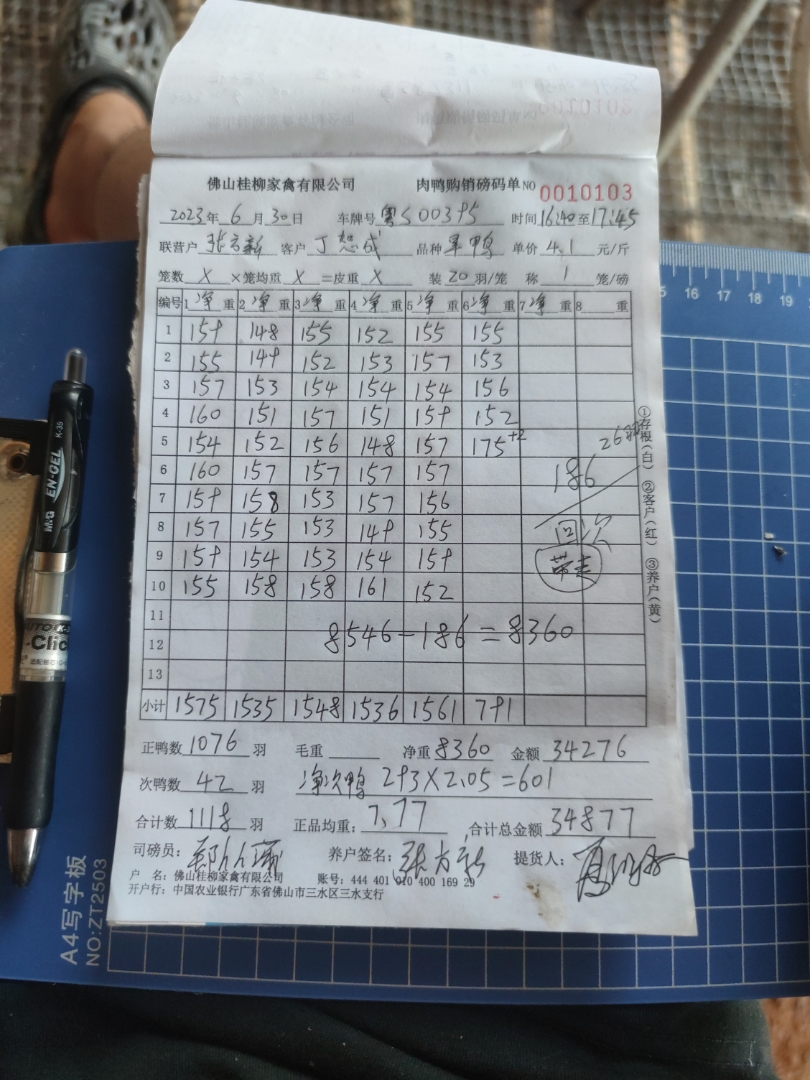 佛山桂柳家禽有限公司 肉鸭购销磅码单 NO 0010103
2023年 6 月 30日 车牌号 粤S003P5 时间16:40至17:45
联营户 客户 品种 单价 4.1 元/斤
笼数 X ×笼均重 X =皮重 X 装 20 羽/笼 称 1 笼/磅
编号 1 净 重 2 净 重 3 净 重 4 净 重 5 净 重 6 净 重 7 净 重 8 重
1 159 148 155 152 155 155
2 155 149 152 153 157 153
3 157 153 154 154 154 156
4 160 151 157 151 159 152
5 154 152 156 148 157 175+2
6 160 157 157 157 157
7 159 158 153 157 156
8 157 155 153 149 155
9 159 154 153 154 159
10 155 158 158 161 152
11
12
13
186
次
带走
8546-186=8360
小计 1575 1535 1548 1536 1561 791
①存根(白) ②客户(红) ③养户(黄)
正鸭数 1076 羽 毛重 净重 8360 金额 34276
次鸭数 42 羽 净次鸭 293×2.05=601
合计数 1118 羽 正品均重: 7.77 合计总金额 34877
司磅员: 养户签名: 提货人:
户 名: 佛山桂柳家禽有限公司 账号: 444 401 010 400 169 29
开户行: 中国农业银行广东省佛山市三水区三水支行
A4写字板
NO:ZT2503
M&G EN-GEL K-35
15 16 17 18 19